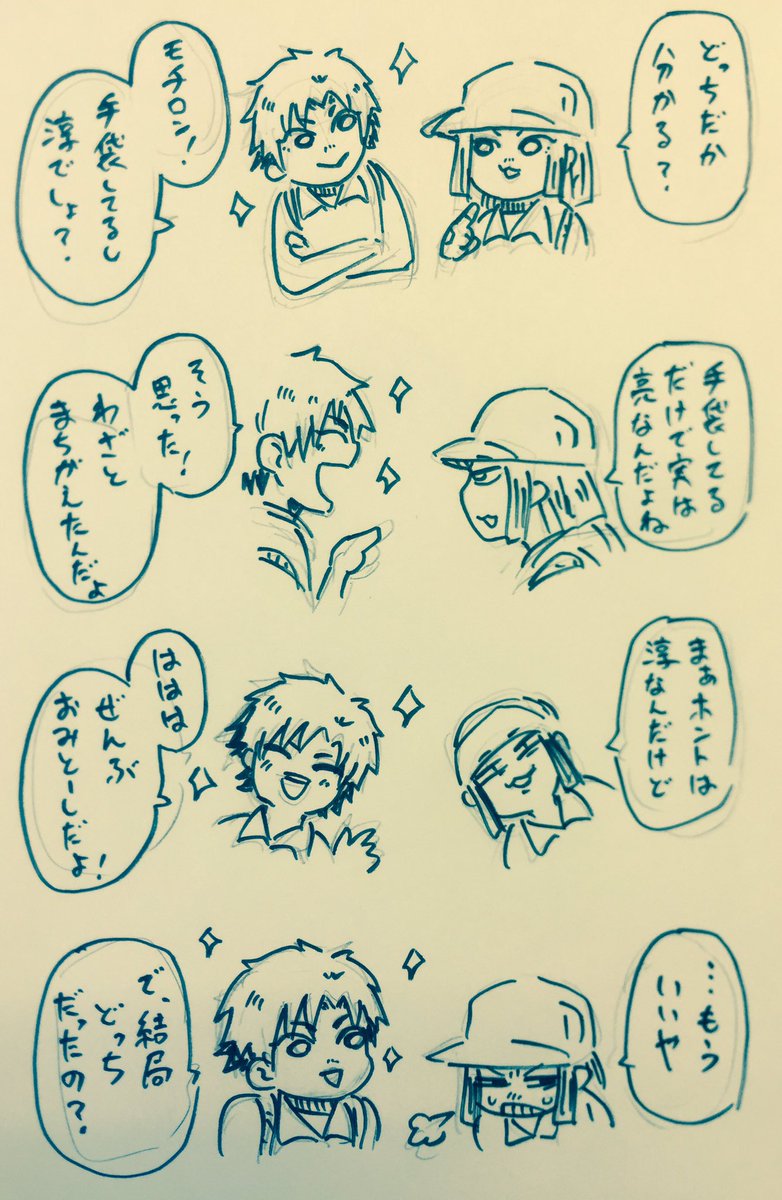 どっちだか
分かる？
モチロン！
手袋してるし
淳でしょ？
手袋してる
だけで実は
亮なんだよね
そう
思った！
わざと
まちがえたんだよ
まぁホントは
淳なんだけど
ははは
ぜんぶ
おみとーしだよ！
…もう
いいや
で、結局
どっち
だったの？